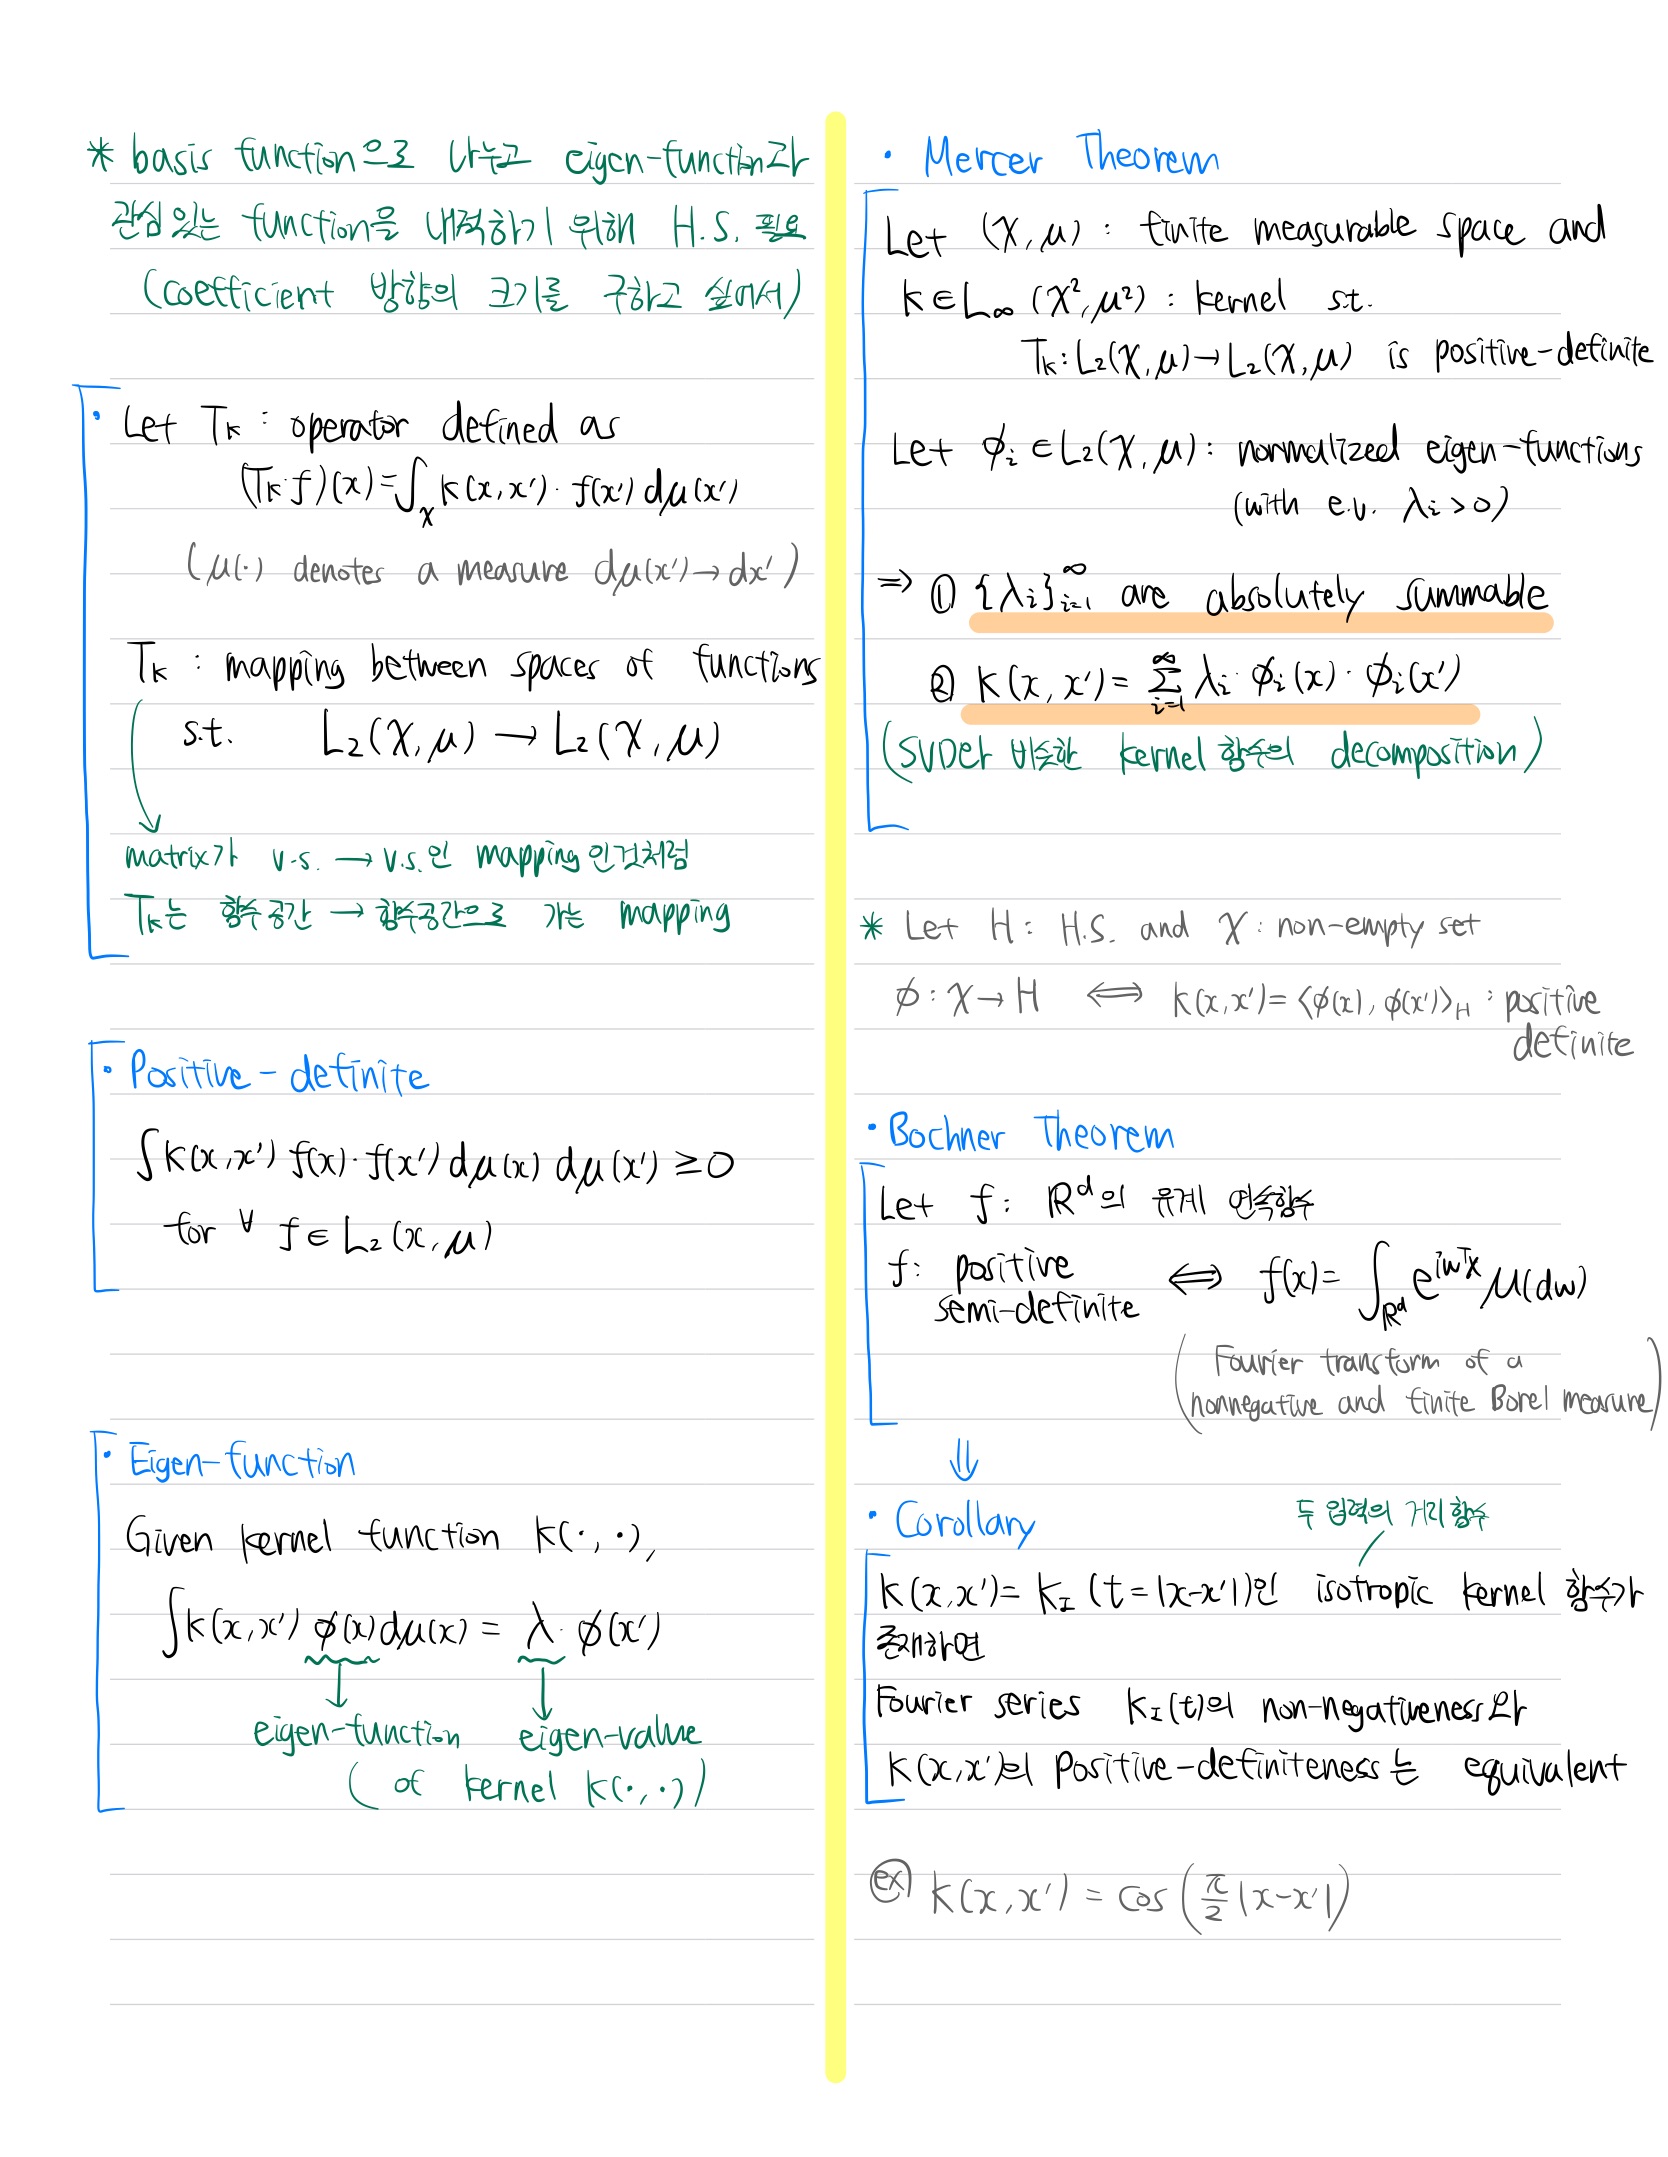 * basis function으로 나누고 eigen-function과
관심있는 function을 내적하기 위해 H.S. 필요
(coefficient 방향의 크기를 구하고 싶어서)
· Let Tₖ : operator defined as
(Tₖ f)(x) = ∫_χ k(x, x′) · f(x′) dμ(x′)
(μ(·) denotes a measure dμ(x′) → dx′)
Tₖ : mapping between spaces of functions
s.t. L₂(χ, μ) → L₂(χ, μ)
matrix가 v.s. → v.s.인 mapping인것처럼
Tₖ는 함수공간 → 함수공간으로 가는 mapping
· Positive - definite
∫ k(x, x′) f(x) · f(x′) dμ(x) dμ(x′) ≥ 0
for ∀ f ∈ L₂(x, μ)
· Eigen-function
Given kernel function k(·, ·),
∫ k(x, x′) φ(x) dμ(x) = λ · φ(x′)
eigen-function eigen-value
(of kernel k(·, ·))
· Mercer Theorem
Let (χ, μ) : finite measurable space and
k ∈ L∞ (χ², μ²) : kernel s.t.
Tₖ : L₂(χ, μ) → L₂(χ, μ) is positive-definite
Let φᵢ ∈ L₂(χ, μ) : normalized eigen-functions
(with e.v. λᵢ > 0)
⇒ ① {λᵢ}_{i=1}^∞ are absolutely summable
② k(x, x′) = Σ_{i=1}^∞ λᵢ · φᵢ(x) · φᵢ(x′)
(SVD와 비슷한 kernel 함수의 decomposition)
* Let H : H.S. and χ : non-empty set
φ : χ → H ⟺ k(x, x′) = ⟨φ(x), φ(x′)⟩_H : positive
definite
· Bochner Theorem
Let f : ℝᵈ의 유계 연속함수
f : positive semi-definite ⟺ f(x) = ∫_{ℝᵈ} e^{iwᵀx} μ(dw)
(Fourier transform of a
nonnegative and finite Borel measure)
⇓
· Corollary
두 입력의 거리함수
k(x, x′) = k_I (t = |x-x′|)인 isotropic kernel 함수가
존재하면
Fourier series k_I(t)의 non-negativeness와
k(x, x′)의 positive-definiteness는 equivalent
ex) k(x, x′) = cos(π/2 |x-x′|)